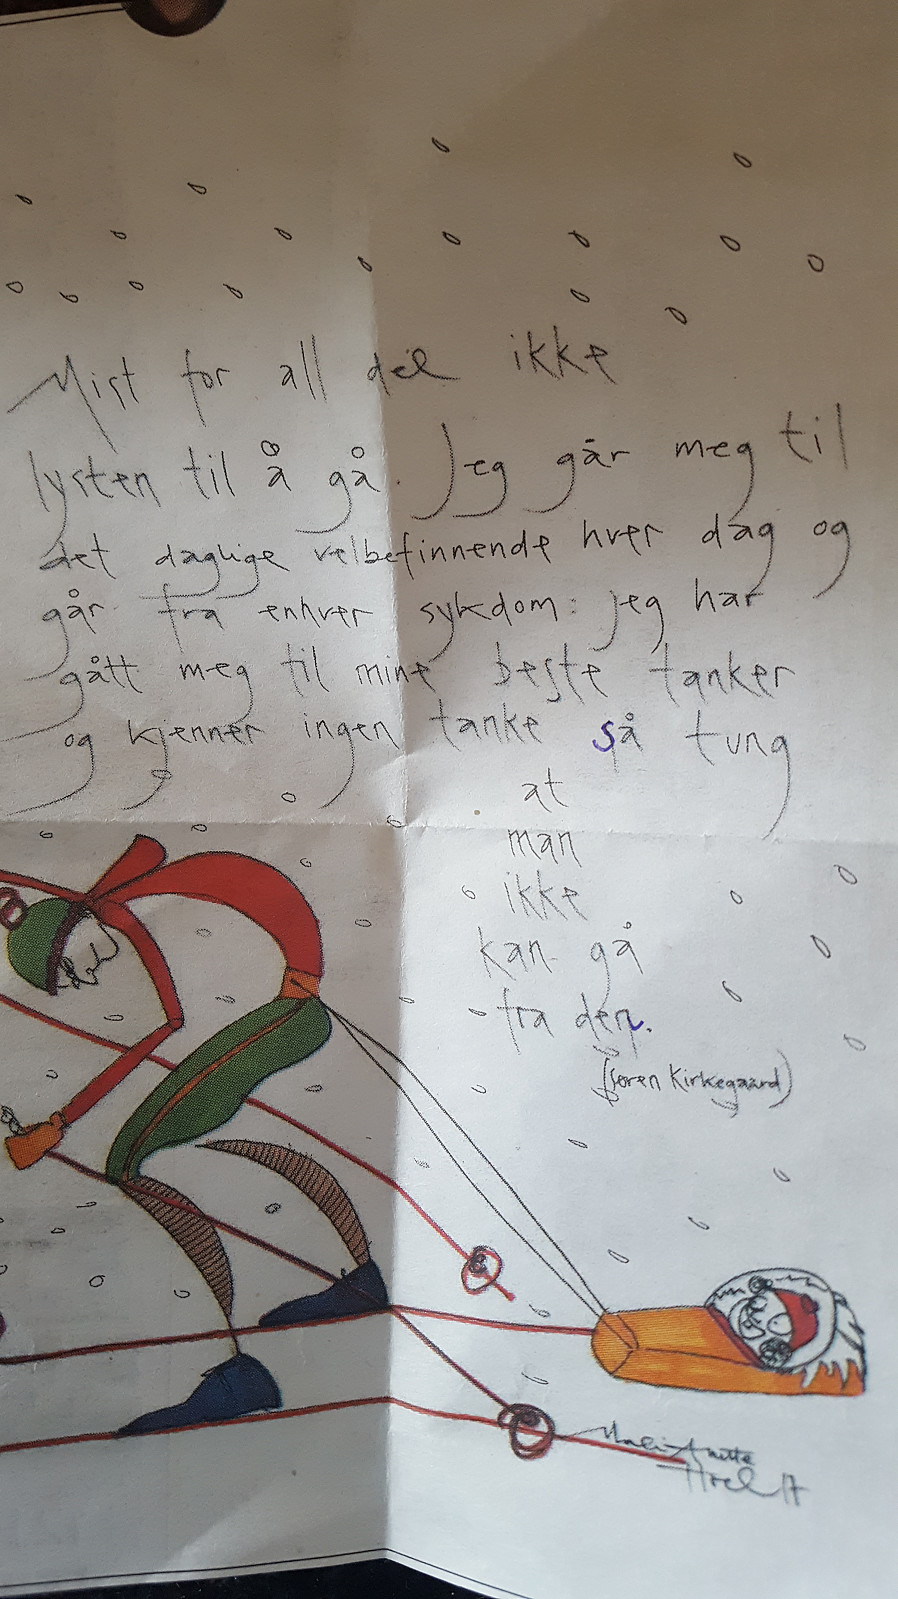 Mist for all del ikke
lysten til å gå. Jeg går meg til
det daglige velbefinnende hver dag og
går fra enhver sykdom: jeg har
gått meg til mine beste tanker
og kjenner ingen tanke så tung
at
man
ikke
kan gå
fra den.
(Søren Kirkegaard)